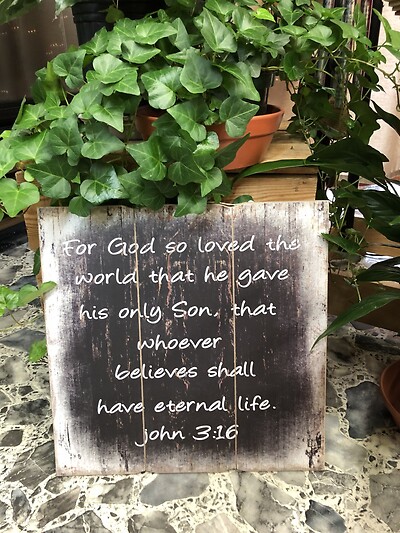 For God so loved the
world that he gave
his only Son, that
whoever
believes shall
have eternal life.
john 3:16